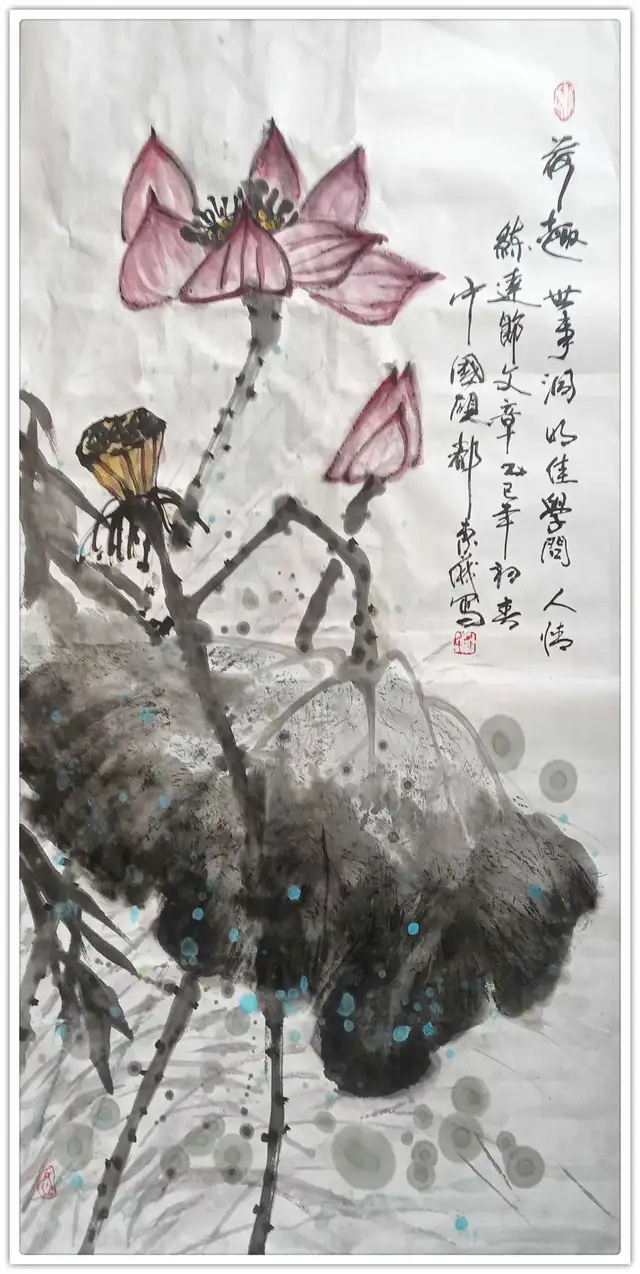 荷趣 世事洞明佳學問 人情
練達節文章 乙巳年初春
中國硯都 寫